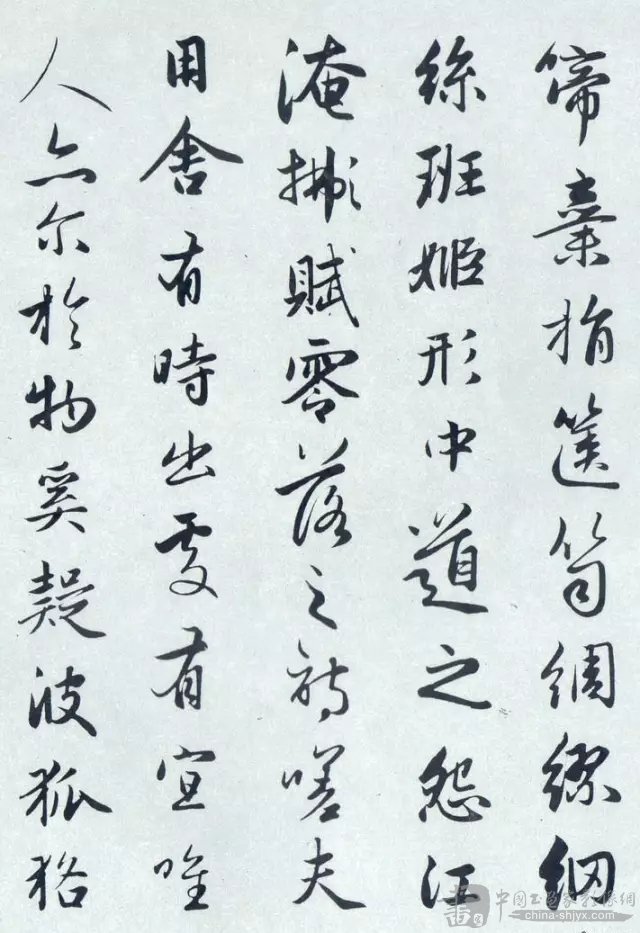 啼棄捐篋笥綢繆網
絲班姬形中道之怨江
淹擬賦零落之詩嗟夫
用舍有時出處有宜唯
人亦尔於物奚疑彼狐狢
china-shjyx.com